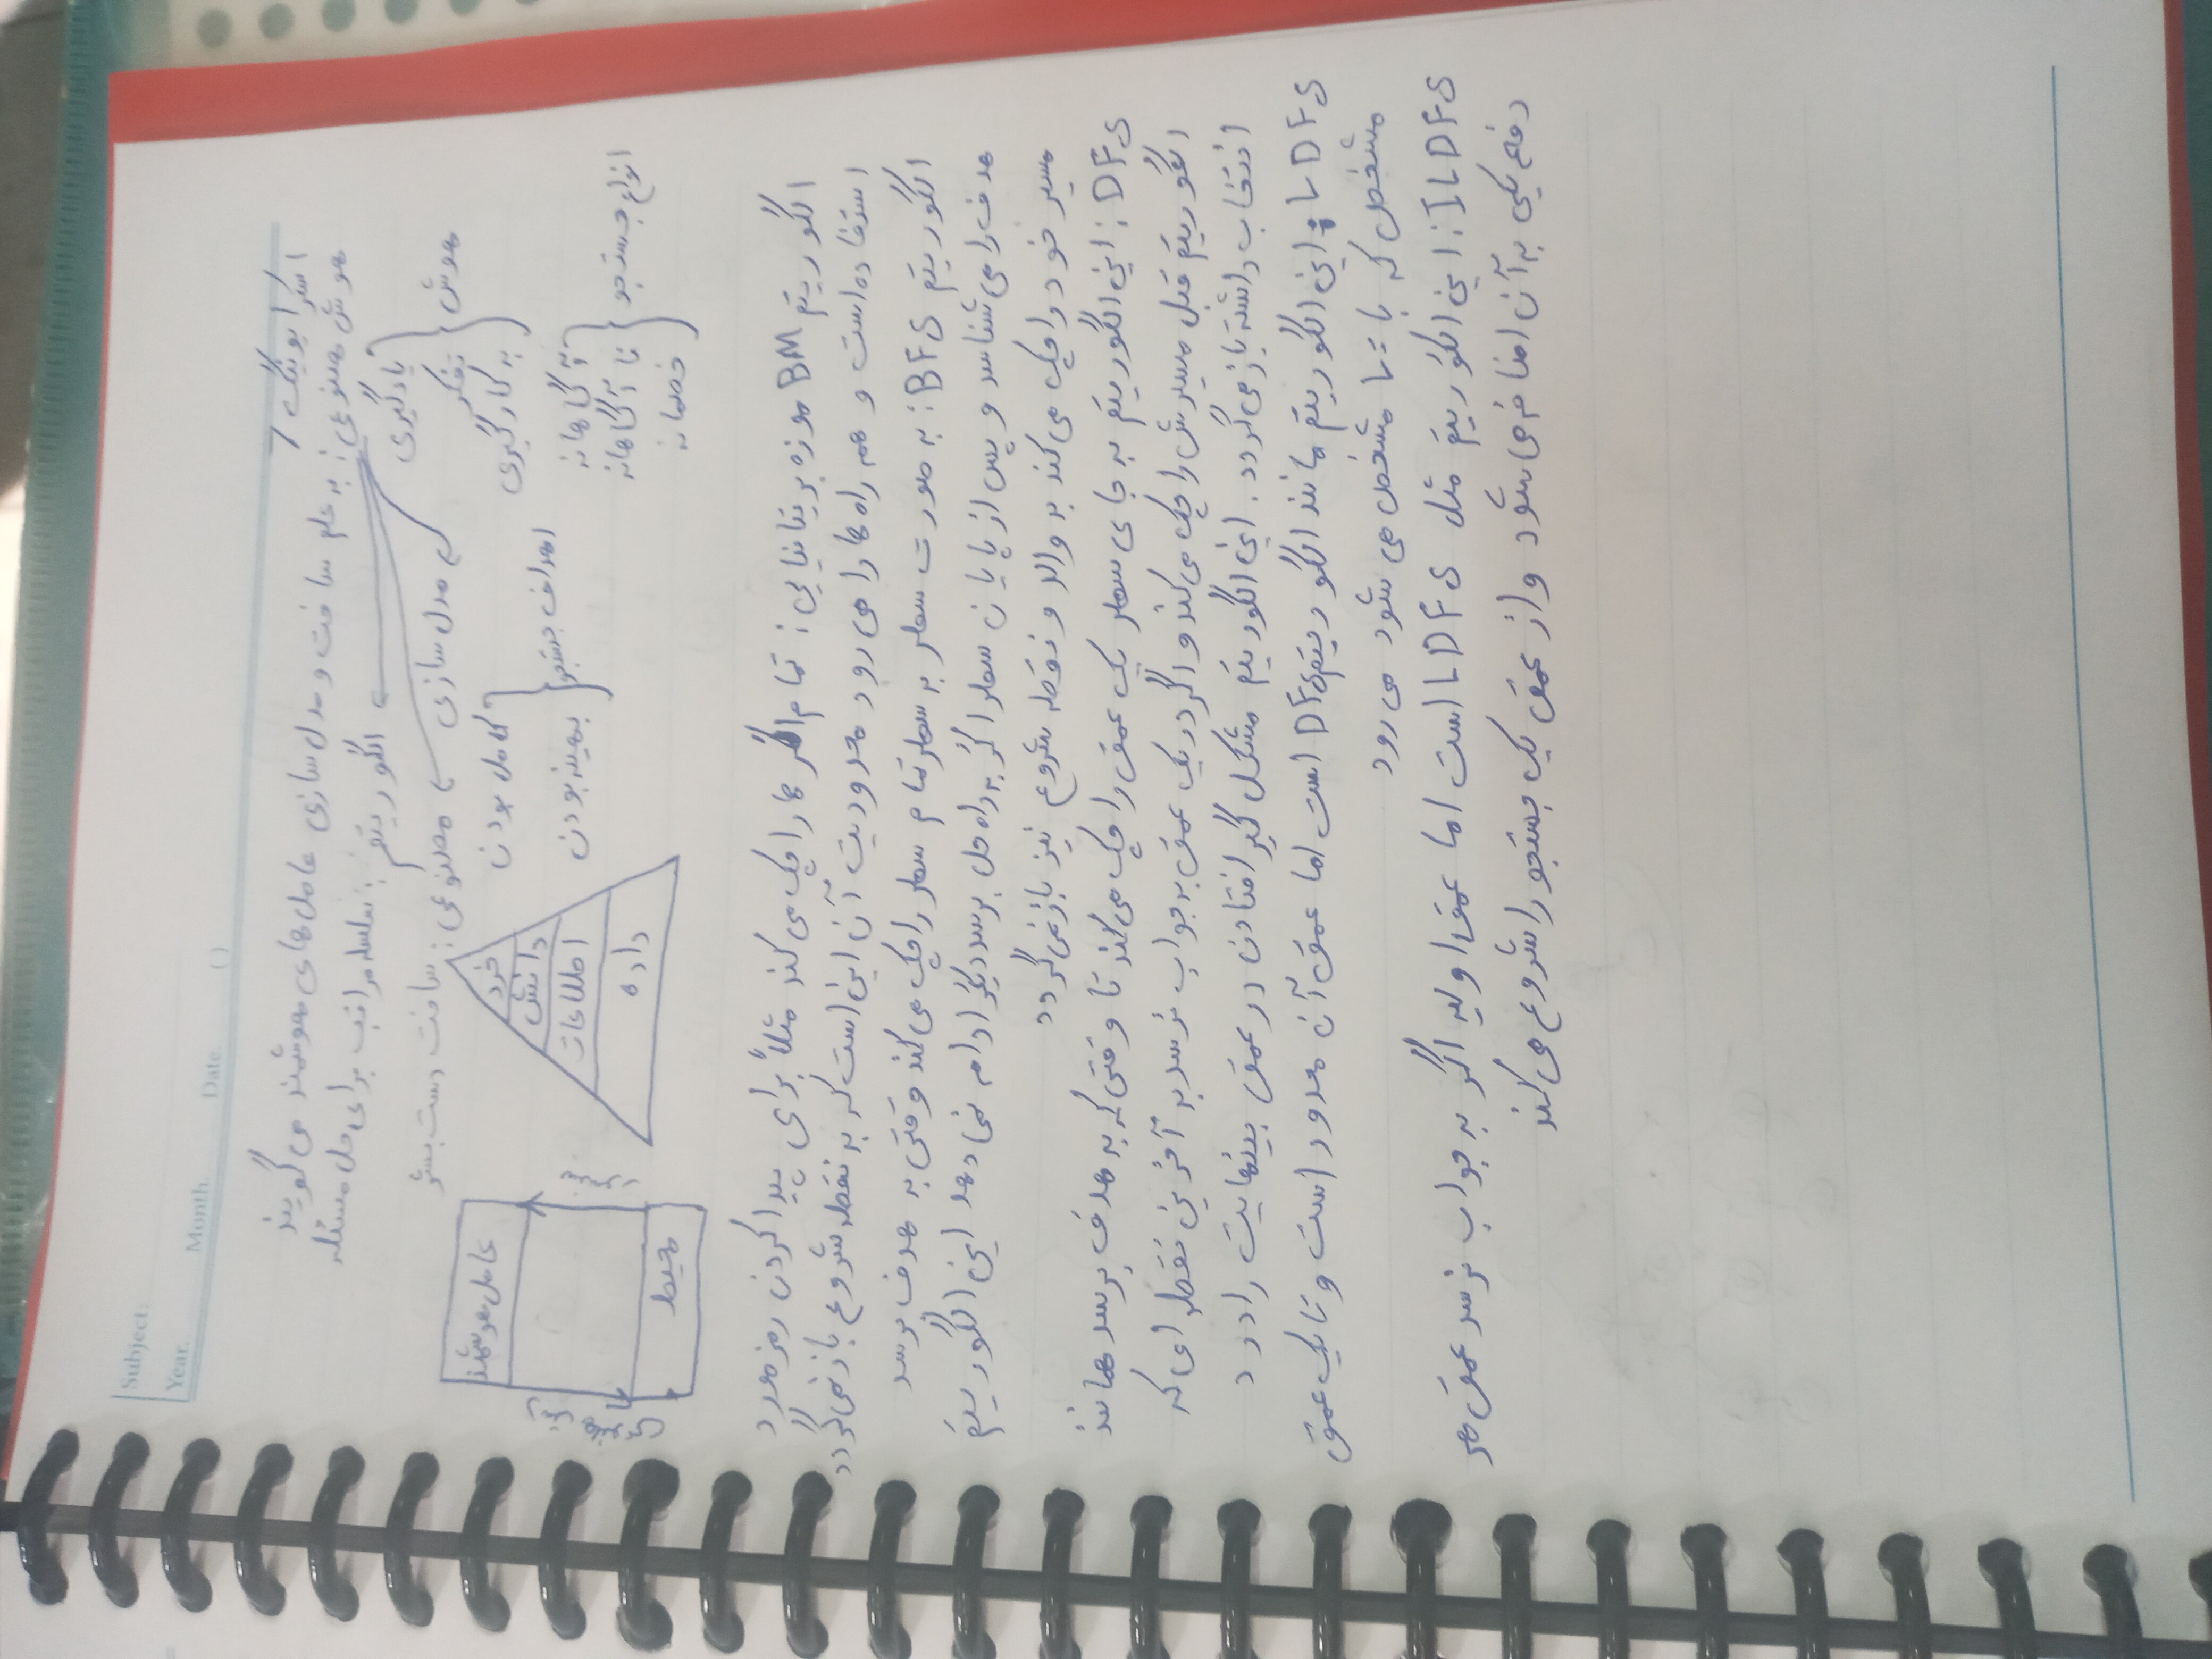 Subject:
Year. Month. Date. ( )
اسکرایوینگ 7
هوش مصنوعی: به علم ساخت و مدل سازی عامل های هوشمند می گویند
الگوریتم: سلسله مراتب برای حل مسئله
مدل سازی
مصنوعی: ساخت دست بشر
هوش
یادگیری
تفکر
به کارگیری
انواع جستجو
آگاهانه
نا آگاهانه
خصمانه
اهداف جستجو
کامل بودن
بهینه بودن
خرد
دانش
اطلاعات
داده
عامل هوشمند
سنسور
محیط
الگوریتم BM موزه بریتانیایی: تمام اگر ها را چک می کند مثلاً برای پیدا کردن رمز مورد
استفاده است و همه راه ها را می رود محدودیت آن این است که به نقطه شروع باز نمی گردد
الگوریتم BFS: به صورت سطر به سطر تمام سطر را چک می کند وقتی به هدف برسد
هدف را می شناسد و پس از پایان سطر اگر به راه حل برسد دیگر ادامه نمی دهد این الگوریتم
مسیر خود را چک می کند به والد و نقطه شروع نیز باز نمی گردد
DFS: این الگوریتم به جای سطر یک عمق را چک می کند تا وقتی که به هدف برسد همانند
الگوریتم قبل مسیرش را چک می کند و اگر در یک عمق به جواب نرسد به آخرین نقطه ای که
انتخاب داشته باز می گردد. این الگوریتم مشکل گیر افتادن در عمق بینهایت را دارد
LDFS: این الگوریتم مانند الگوریتم DFS است اما عمق آن محدود است و تا یک عمق
مشخص که با L= مشخص می شود می رود
ILDFS: این الگوریتم مثل LDFS است اما عمق اولیه اگر به جواب نرسد عمق هر
دفعه یکی به آن اضافه می شود و از عمق یک جستجو را شروع می کند